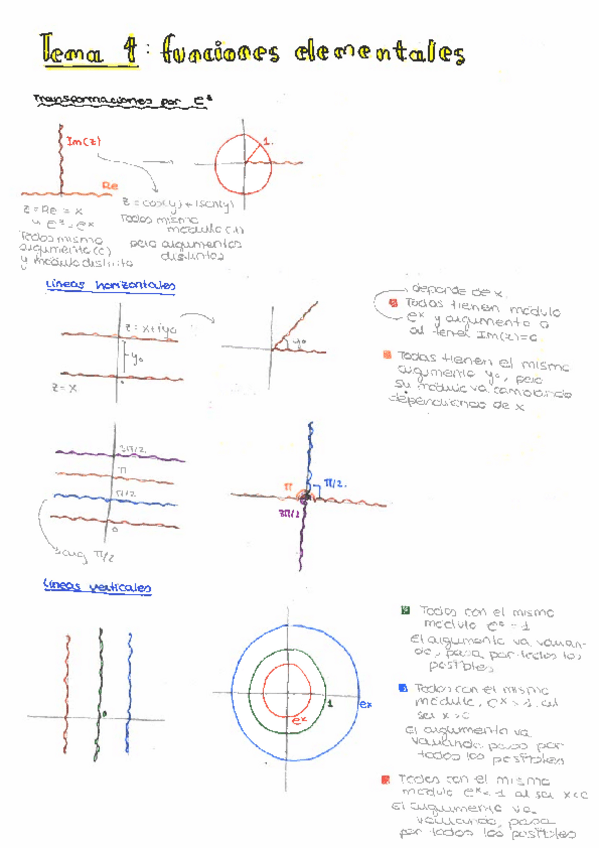 Tema 4: funciones elementales
Transformaciones por e^z
Im(z)
Re
1.
z = Re = x
e^z = e^x
Todos mismo
argumento (0)
y modulo distinto
z = cos(y) + isen(y)
Todos mismo
modulo (1)
pero argumentos
distintos
Líneas horizontales
z = x+iy₀
y₀
z = x
0
y₀
depende de x.
Todas tienen modulo
e^x y argumento 0
al tener Im(z)=0
Todas tienen el mismo
argumento y₀, pero
su modulo va cambiando
dependiendo de x
3π/2
π
π/2
0
arg π/2
π
π/2.
3π/2
Líneas verticales
0
e^x
1
e^x
Todos con el mismo
modulo e^0 = 1
El argumento va varian-
do, pasa por todos los
posibles
Todos con el mismo
modulo, e^x > 1 al
ser x > 0
El argumento va
variando, pasa por
todos los posibles
Todos con el mismo
modulo e^x < 1 al ser x<0
El argumento va
variando, pasa
por todos los posibles